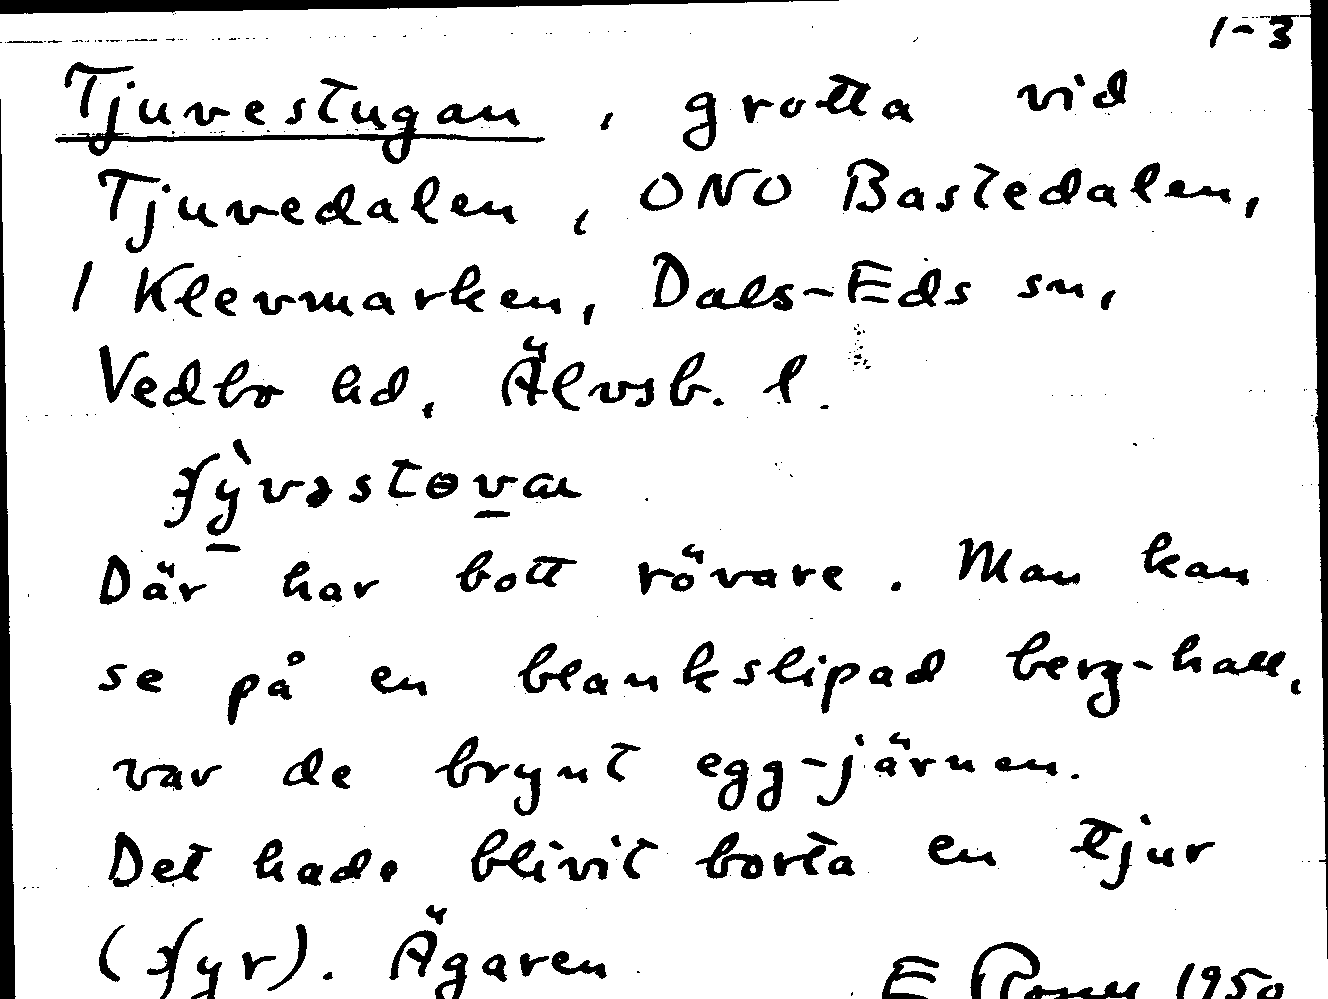 1-3
Tjuvestugan, grotta vid
Tjuvedalen, ONO Bastedalen,
1 Klevmarken, Dals-Eds sn,
Vedbo hd, Älvsb. l.
Där har bott rövare. Man kan
se på en blankslipad berg-hall,
var de brynt egg-järnen.
Det hade blivit borta en tjur
Ägaren
E 1950